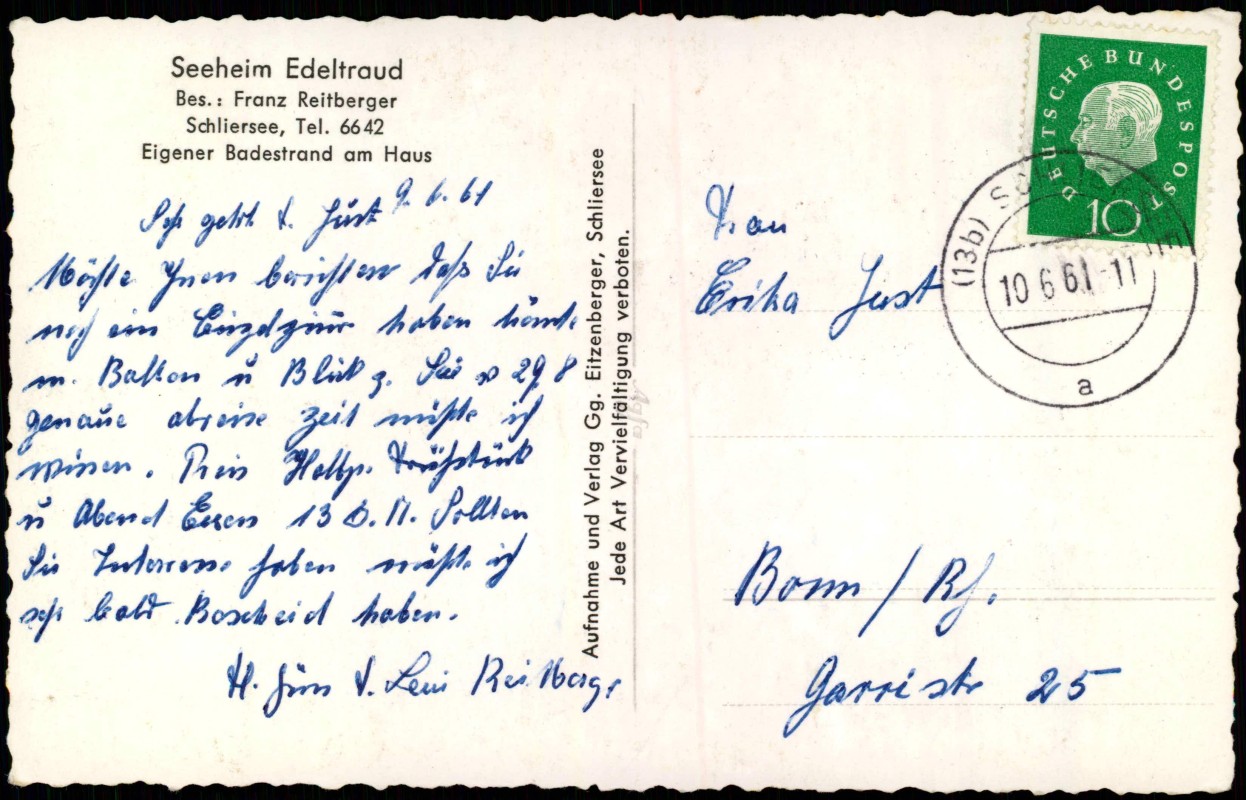 Seeheim Edeltraud
Bes.: Franz Reitberger
Schliersee, Tel. 6642
Eigener Badestrand am Haus
9.6.61
Seh geehrt F. Just
Möchte Ihnen berichten daß Sie
noch ein Einzelzimr haben könnte
m. Balkon u Blick z. See v 29.8
genaue abreise zeit müßte ich
wissen. Preis Halbp. Frühstück
u Abend Essen 13 D.M. Sollten
Sie Interresse haben müßte ich
seh bald Bescheid haben.
H. Grüs F. Leni Reitberger
Aufnahme und Verlag Gg. Eitzenberger, Schliersee
Jede Art Vervielfältigung verboten.
DEUTSCHE BUNDESPOST
10
(13b) SCHLIERSEE
10.6.61-11
a
Frau
Erika Just
Bonn / Rh.
25